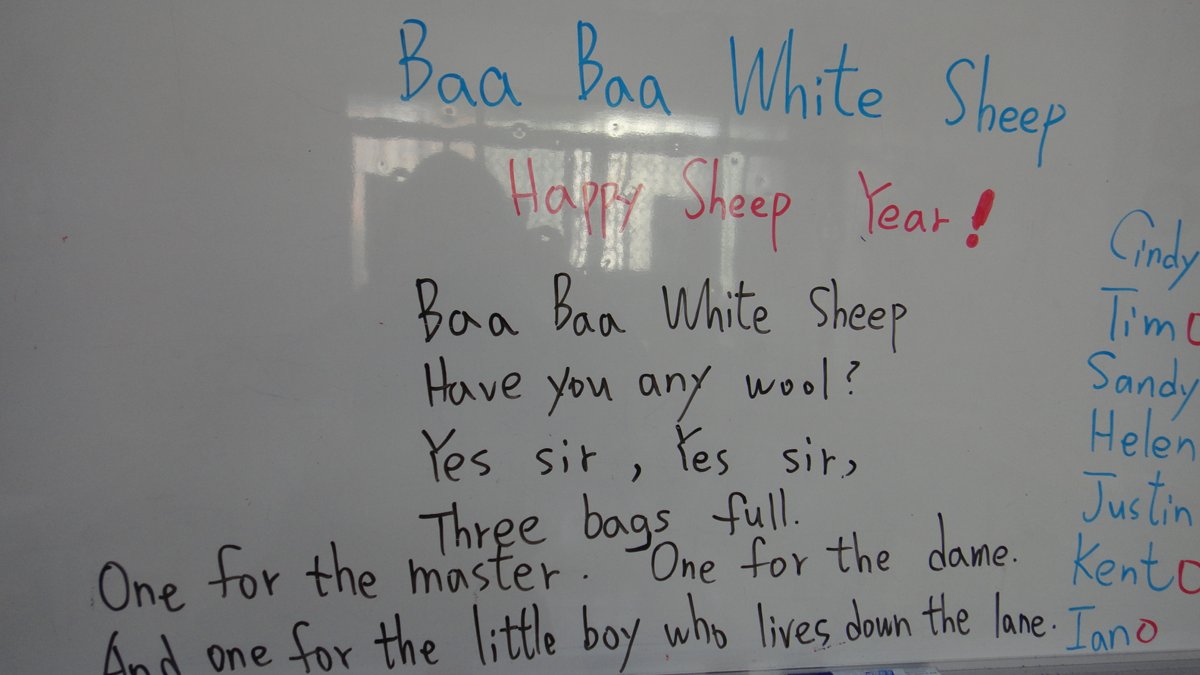 Baa Baa White Sheep
Happy Sheep Year!
Baa Baa White Sheep
Have you any wool?
Yes sir, Yes sir,
Three bags full.
One for the master. One for the dame.
And one for the little boy who lives down the lane.
Cindy
Tim
Sandy
Helen
Justin
Kent
Ian